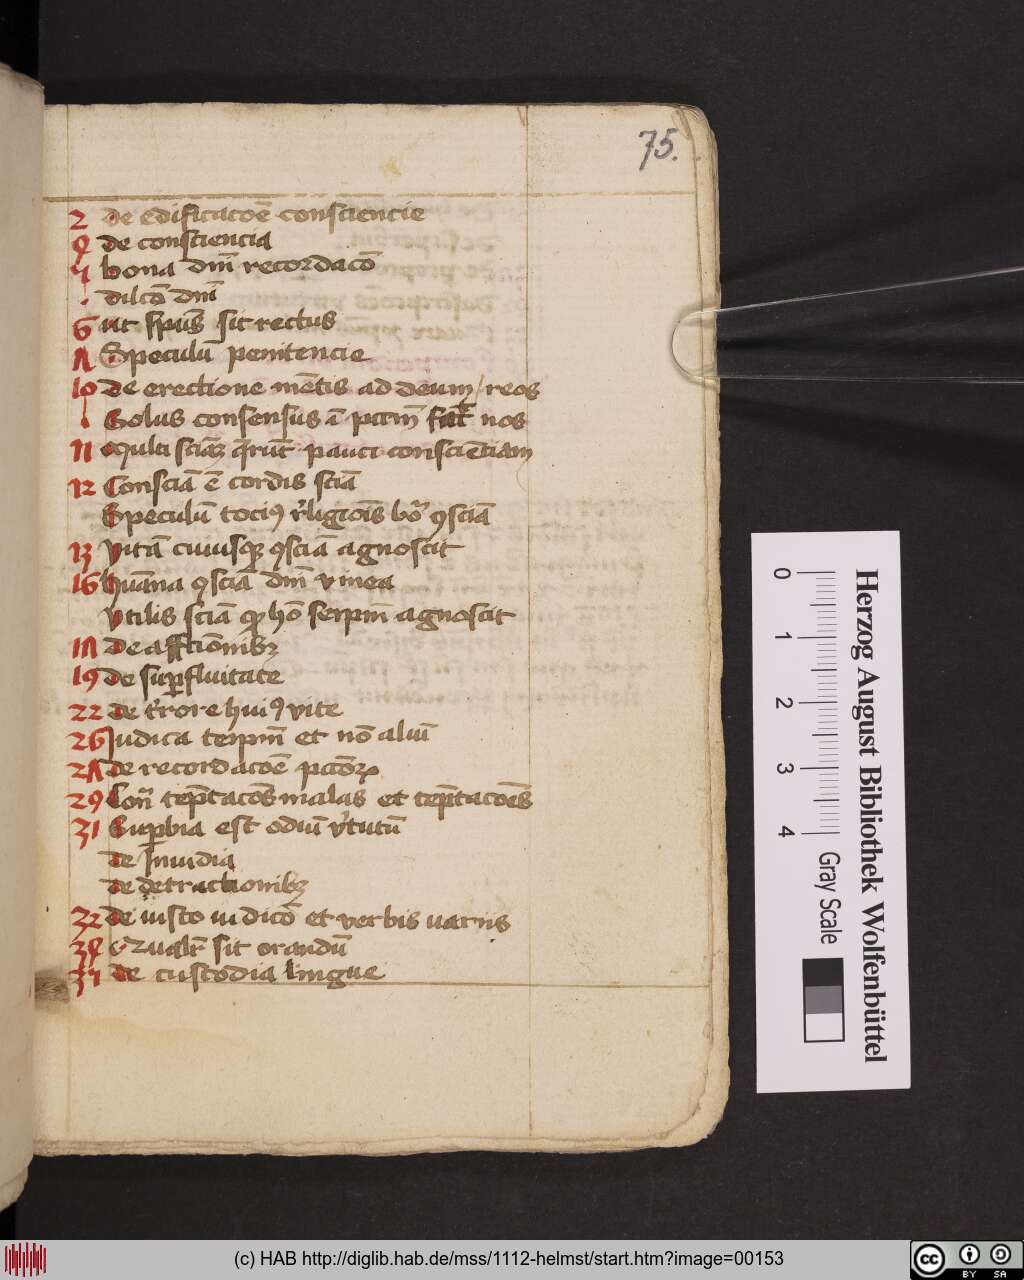 75.
2 de edificacoē consciencie
4 de consciencia
5 bona dm̄ recordacō
dilcō dm̄
6 ut spūs sit rectus
7 Speculū penitencie
10 de erectione mētis ad deum / reos
Solus consensus
11 Multi sciāʒ q̄rūt pauci conscēciam
12 Consciā ē cordis sciā
Speculū tociꝰ religiōis bōͣ ꝯsciā
13 Vitā cuiusqʒ ꝯsciā agnoscit
16 humāna ꝯsciā dm̄ vinea
Vtilis sciā hō agnoscit
17 de affcciōnibʒ
19 de suꝑfluitate
22 de errore huiꝰ vite
26 Judica teipm̄ et nō aliū
27 de recordacoē pctōꝝ
29 Con̄ tēptacōs malas et tēptacoēs
31 Suꝑbia est odiū virtutū
de Inuidia
de detractionibʒ
32 de iusto iudicō et verbis uariis
34 Qualr̄ sit orandū
35 de custodia lingue
Herzog August Bibliothek Wolfenbüttel
0 1 2 3 4
Gray Scale
(c) HAB http://diglib.hab.de/mss/1112-helmst/start.htm?image=00153
cc BY SA